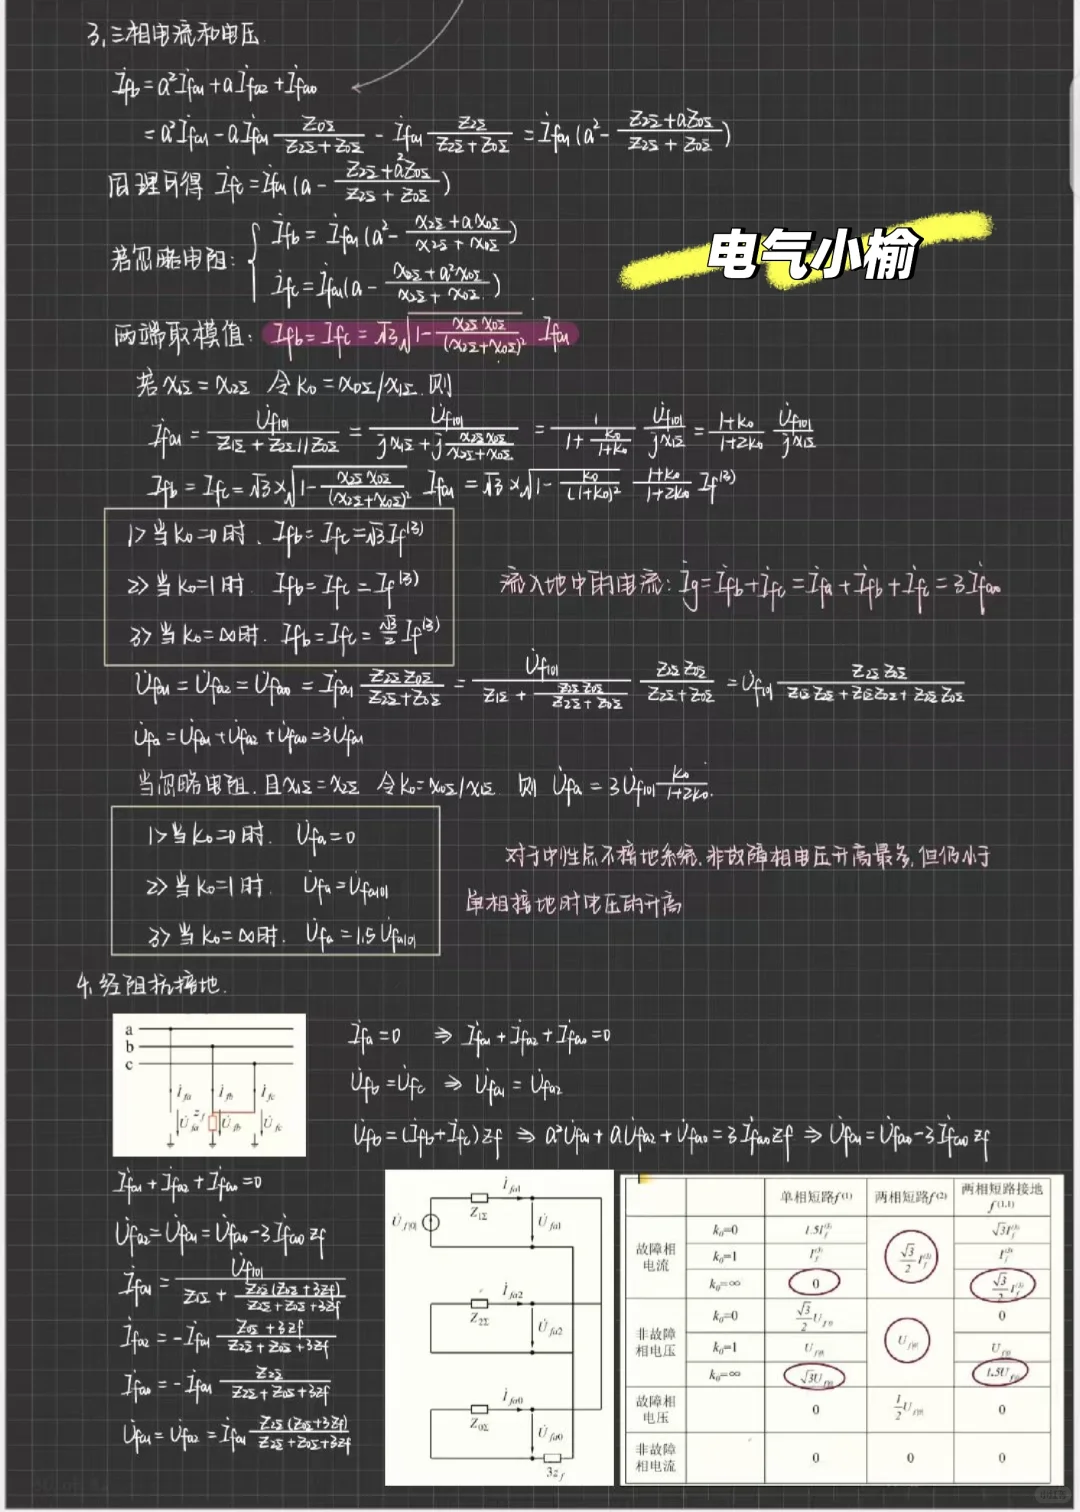 3、三相电流和电压
İfb = a²İfa1 + aİfa2 + İfa0
= a²İfa1 - aİfa1 Z0Σ/(Z2Σ+Z0Σ) - İfa1 Z2Σ/(Z2Σ+Z0Σ) = İfa1(a² - (Z2Σ+aZ0Σ)/(Z2Σ+Z0Σ))
同理可得 İfc = İfa1(a - (Z2Σ+a²Z0Σ)/(Z2Σ+Z0Σ))
电气小榆
若忽略电阻: { İfb = İfa1(a² - (x2Σ+ax0Σ)/(x2Σ+x0Σ))
İfc = İfa1(a - (x2Σ+a²x0Σ)/(x2Σ+x0Σ))
两端取模值: Ifb = Ifc = √3 √(1 - x2Σx0Σ/(x2Σ+x0Σ)²) Ifa1
若x1Σ = x2Σ 令k0 = x0Σ/x1Σ.则
İfa1 = U̇f|0|/(Z1Σ+Z2Σ//Z0Σ) = U̇f|0|/(jx1Σ+j x2Σx0Σ/(x2Σ+x0Σ)) = 1/(1+k0/(1+k0)) U̇f|0|/jx1Σ = (1+k0)/(1+2k0) U̇f|0|/jx1Σ
Ifb = Ifc = √3×√(1 - x2Σx0Σ/(x2Σ+x0Σ)²) Ifa1 = √3×√(1 - k0/(1+k0)²) (1+k0)/(1+2k0) If⁽³⁾
1> 当k0=0时. Ifb = Ifc = √3If⁽³⁾
2> 当k0=1时. Ifb = Ifc = If⁽³⁾
流入地中的电流: İg = İfb + İfc = İfa + İfb + İfc = 3İfa0
3> 当k0=∞时. Ifb = Ifc = √3/2 If⁽³⁾
U̇fa1 = U̇fa2 = U̇fa0 = İfa1 Z2ΣZ0Σ/(Z2Σ+Z0Σ) = U̇f|0|/(Z1Σ+Z2ΣZ0Σ/(Z2Σ+Z0Σ)) Z2ΣZ0Σ/(Z2Σ+Z0Σ) = U̇f|0| Z2ΣZ0Σ/(Z1ΣZ2Σ+Z1ΣZ0Σ+Z2ΣZ0Σ)
U̇fa = U̇fa1 + U̇fa2 + U̇fa0 = 3U̇fa1
当忽略电阻.且x1Σ = x2Σ 令k0 = x0Σ/x1Σ 则 U̇fa = 3U̇f|0| k0/(1+2k0).
1> 当k0=0时. U̇fa = 0
2> 当k0=1时. U̇fa = U̇fa|0|
3> 当k0=∞时. U̇fa = 1.5U̇fa|0|
对于中性点不接地系统.非故障相电压升高最多,但仍小于
单相接地时电压的升高
4、经阻抗接地.
a
b
c
İfa İfb İfc
U̇fa zf U̇fb U̇fc
İfa = 0 ⇒ İfa1 + İfa2 + İfa0 = 0
U̇fb = U̇fc ⇒ U̇fa1 = U̇fa2
U̇fb = (İfb + İfc)zf ⇒ a²U̇fa1 + aU̇fa2 + U̇fa0 = 3İfa0zf ⇒ U̇fa1 = U̇fa0 - 3İfa0zf
İfa1 + İfa2 + İfa0 = 0
U̇fa2 = U̇fa1 = U̇fa0 - 3İfa0zf
İfa1 = U̇f|0|/(Z1Σ + Z2Σ(Z0Σ+3zf)/(Z2Σ+Z0Σ+3zf))
İfa2 = -İfa1 (Z0Σ+3zf)/(Z2Σ+Z0Σ+3zf)
İfa0 = -İfa1 Z2Σ/(Z2Σ+Z0Σ+3zf)
U̇fa1 = U̇fa2 = İfa1 Z2Σ(Z0Σ+3zf)/(Z2Σ+Z0Σ+3zf)
Z1Σ İfa1
U̇f|0| U̇fa1
Z2Σ İfa2
U̇fa2
Z0Σ İfa0
U̇fa0
3zf
单相短路f⁽¹⁾ 两相短路f⁽²⁾ 两相短路接地f⁽¹,¹⁾
故障相电流 k0=0 1.5If⁽³⁾ √3/2 If⁽³⁾ √3If⁽³⁾
k0=1 If⁽³⁾ If⁽³⁾
k0=∞ 0 √3/2 If⁽³⁾
非故障相电压 k0=0 √3/2 Uf|0| Uf|0| 0
k0=1 Uf|0| Uf|0|
k0=∞ √3Uf|0| 1.5Uf|0|
故障相电压 0 1/2 Uf|0| 0
非故障相电流 0 0 0